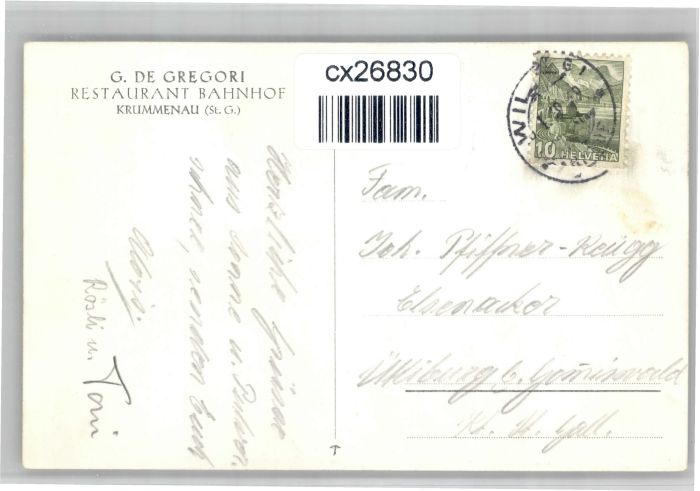 G. DE GREGORI
RESTAURANT BAHNHOF
KRUMMENAU (St. G.)
cx26830
WIL
10 HELVETIA
Herzliche Grüsse
aus Sonne u. Pulver-
schnee, senden Euch
Alois.
Rösli u. Toni
Fam.
Joh. Pfiffner-Rüegg
Elsenacker
b. Gommiswald
Kt. St. Gall.